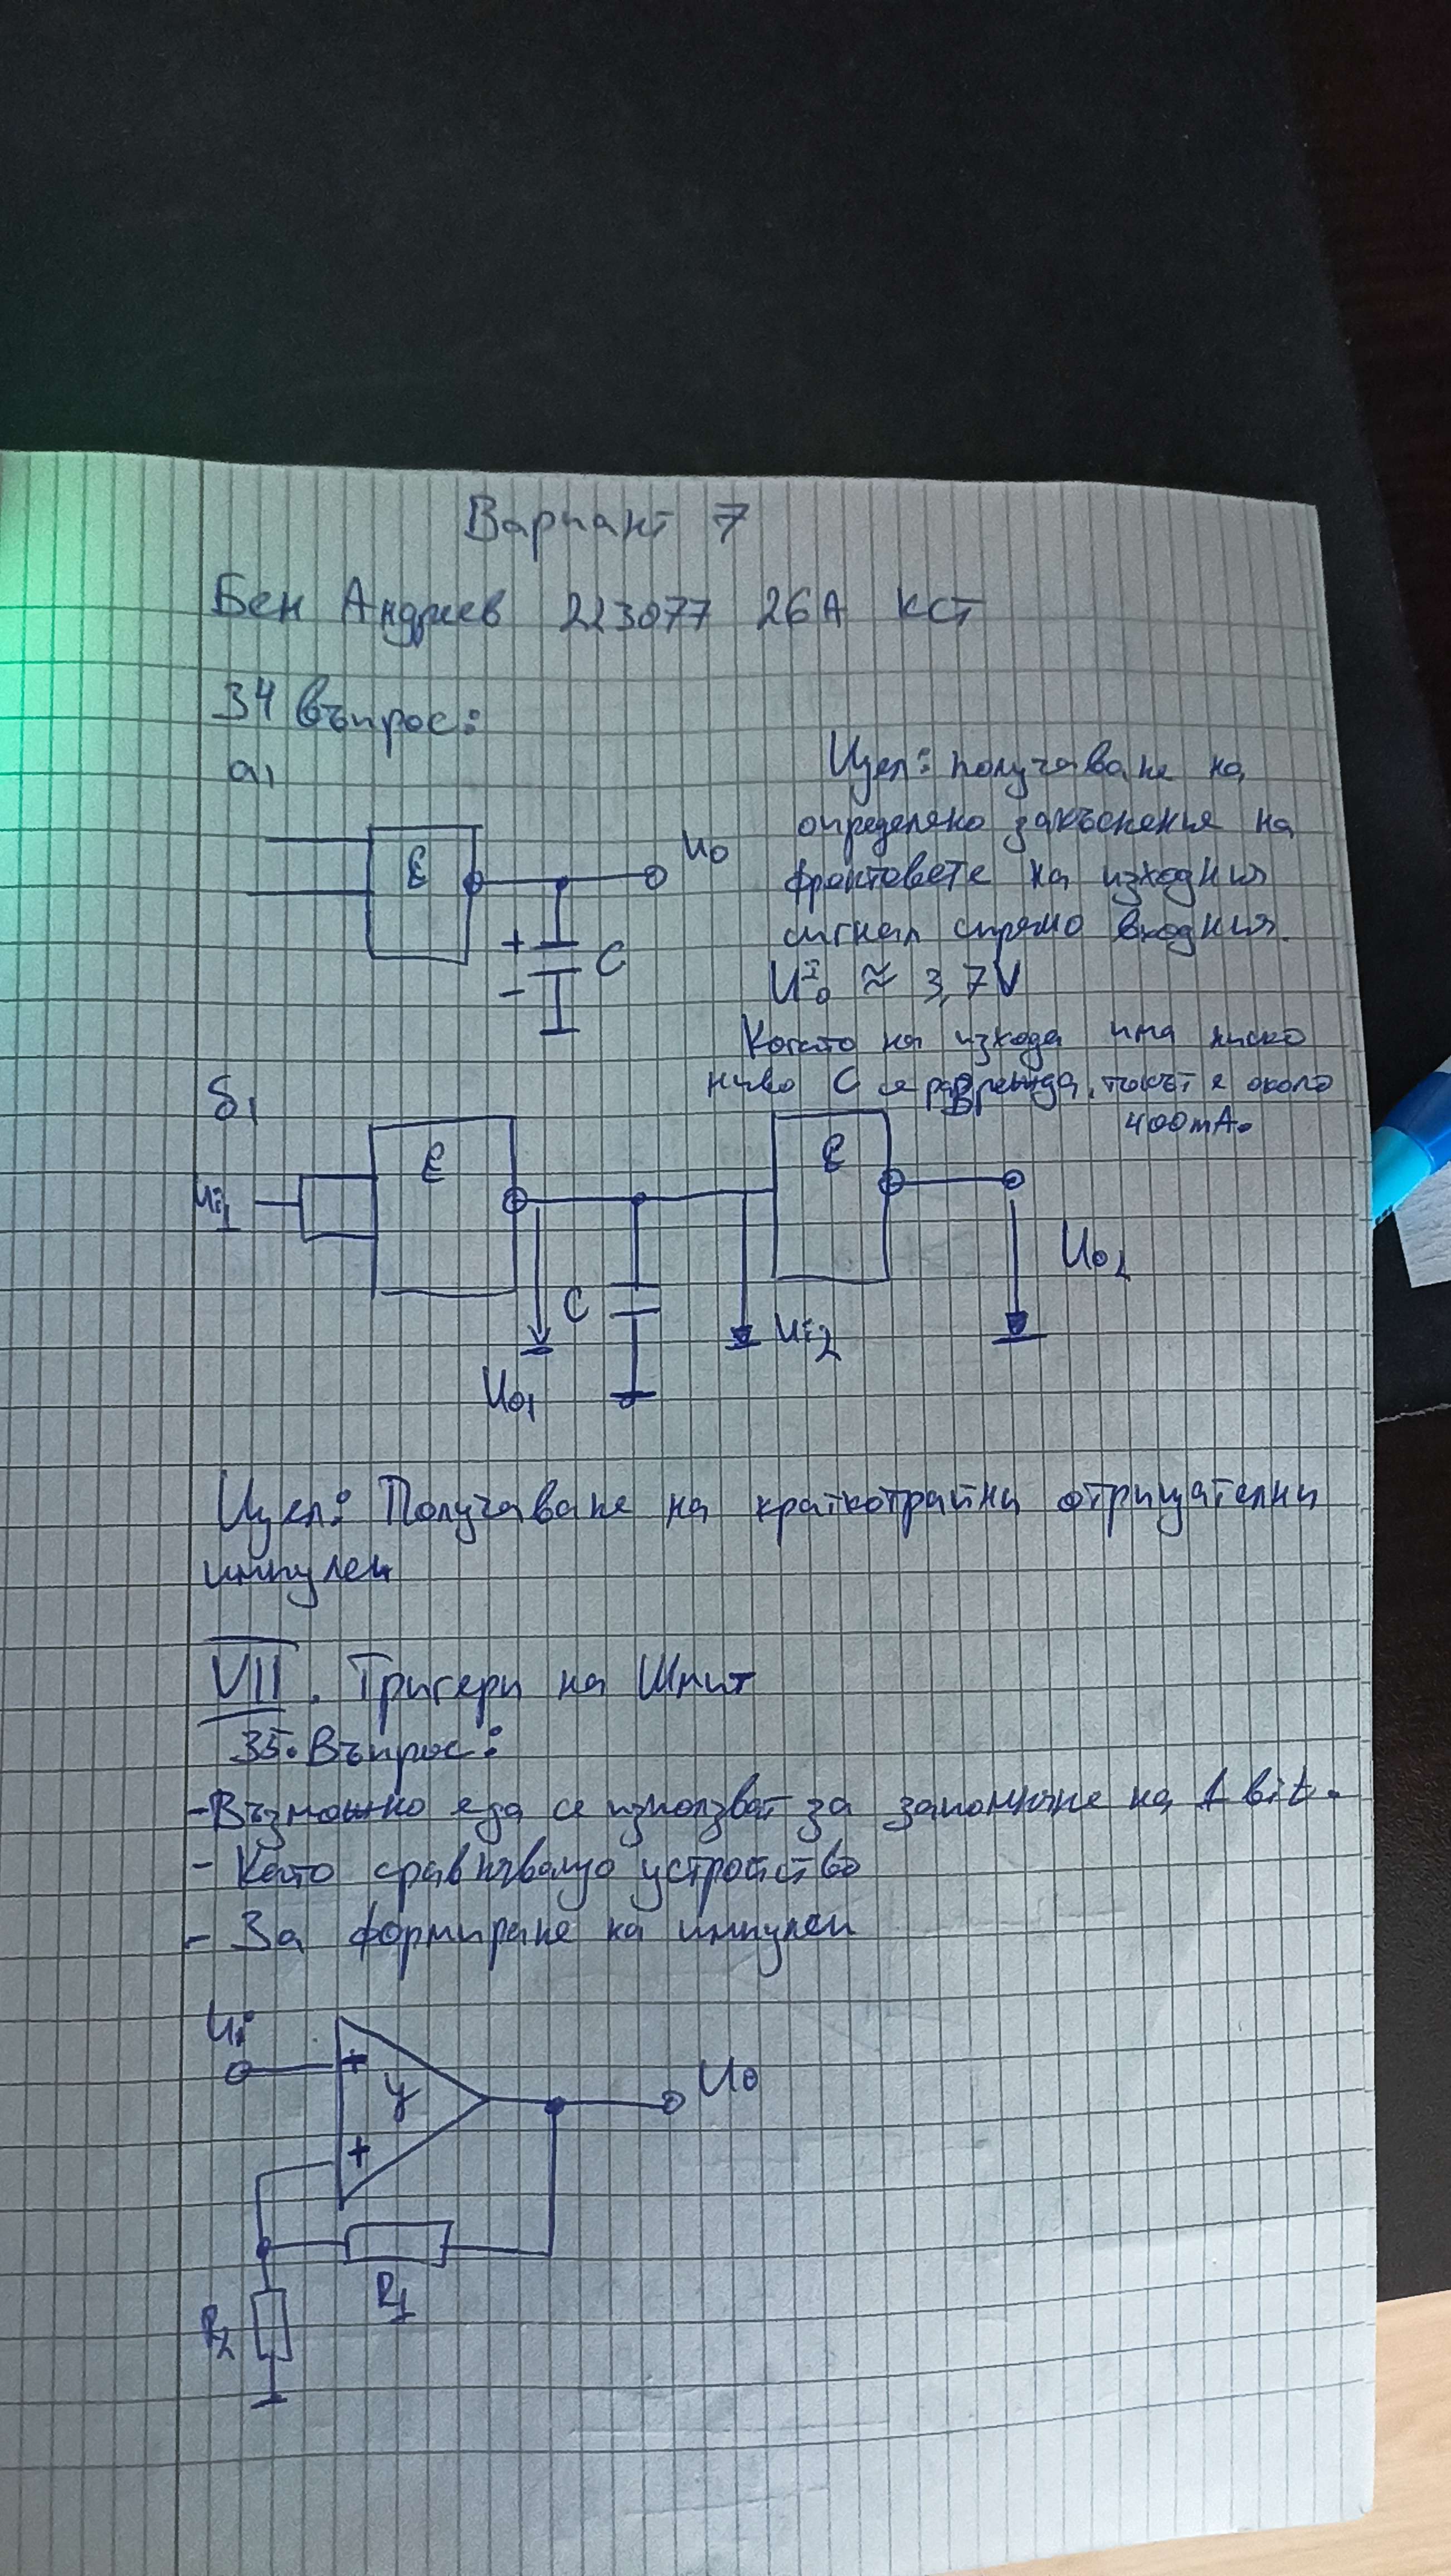 Вариант 7
Бен Андреев 223077 26А КСТ
34 въпрос:
а)
Цел: получаване на
определено закъснение на
фронтовете на изходния
сигнал спрямо входния.
U¹₀ ≈ 3,7V
Когато на изхода има ниско
ниво C се разрежда, токът е около
400mA.
&
U₀
+
C
-
б)
Ui1
&
&
C
U01
Ui2
U02
Цел: Получаване на краткотрайни отрицателни
импулси
VII. Тригери на Шмит
35. Въпрос:
-Възможно е да се използват за запомняне на 1 bit.
- Като сравняващо устройство
- За формиране на импулси
Ui
+
У
+
U0
R1
R2